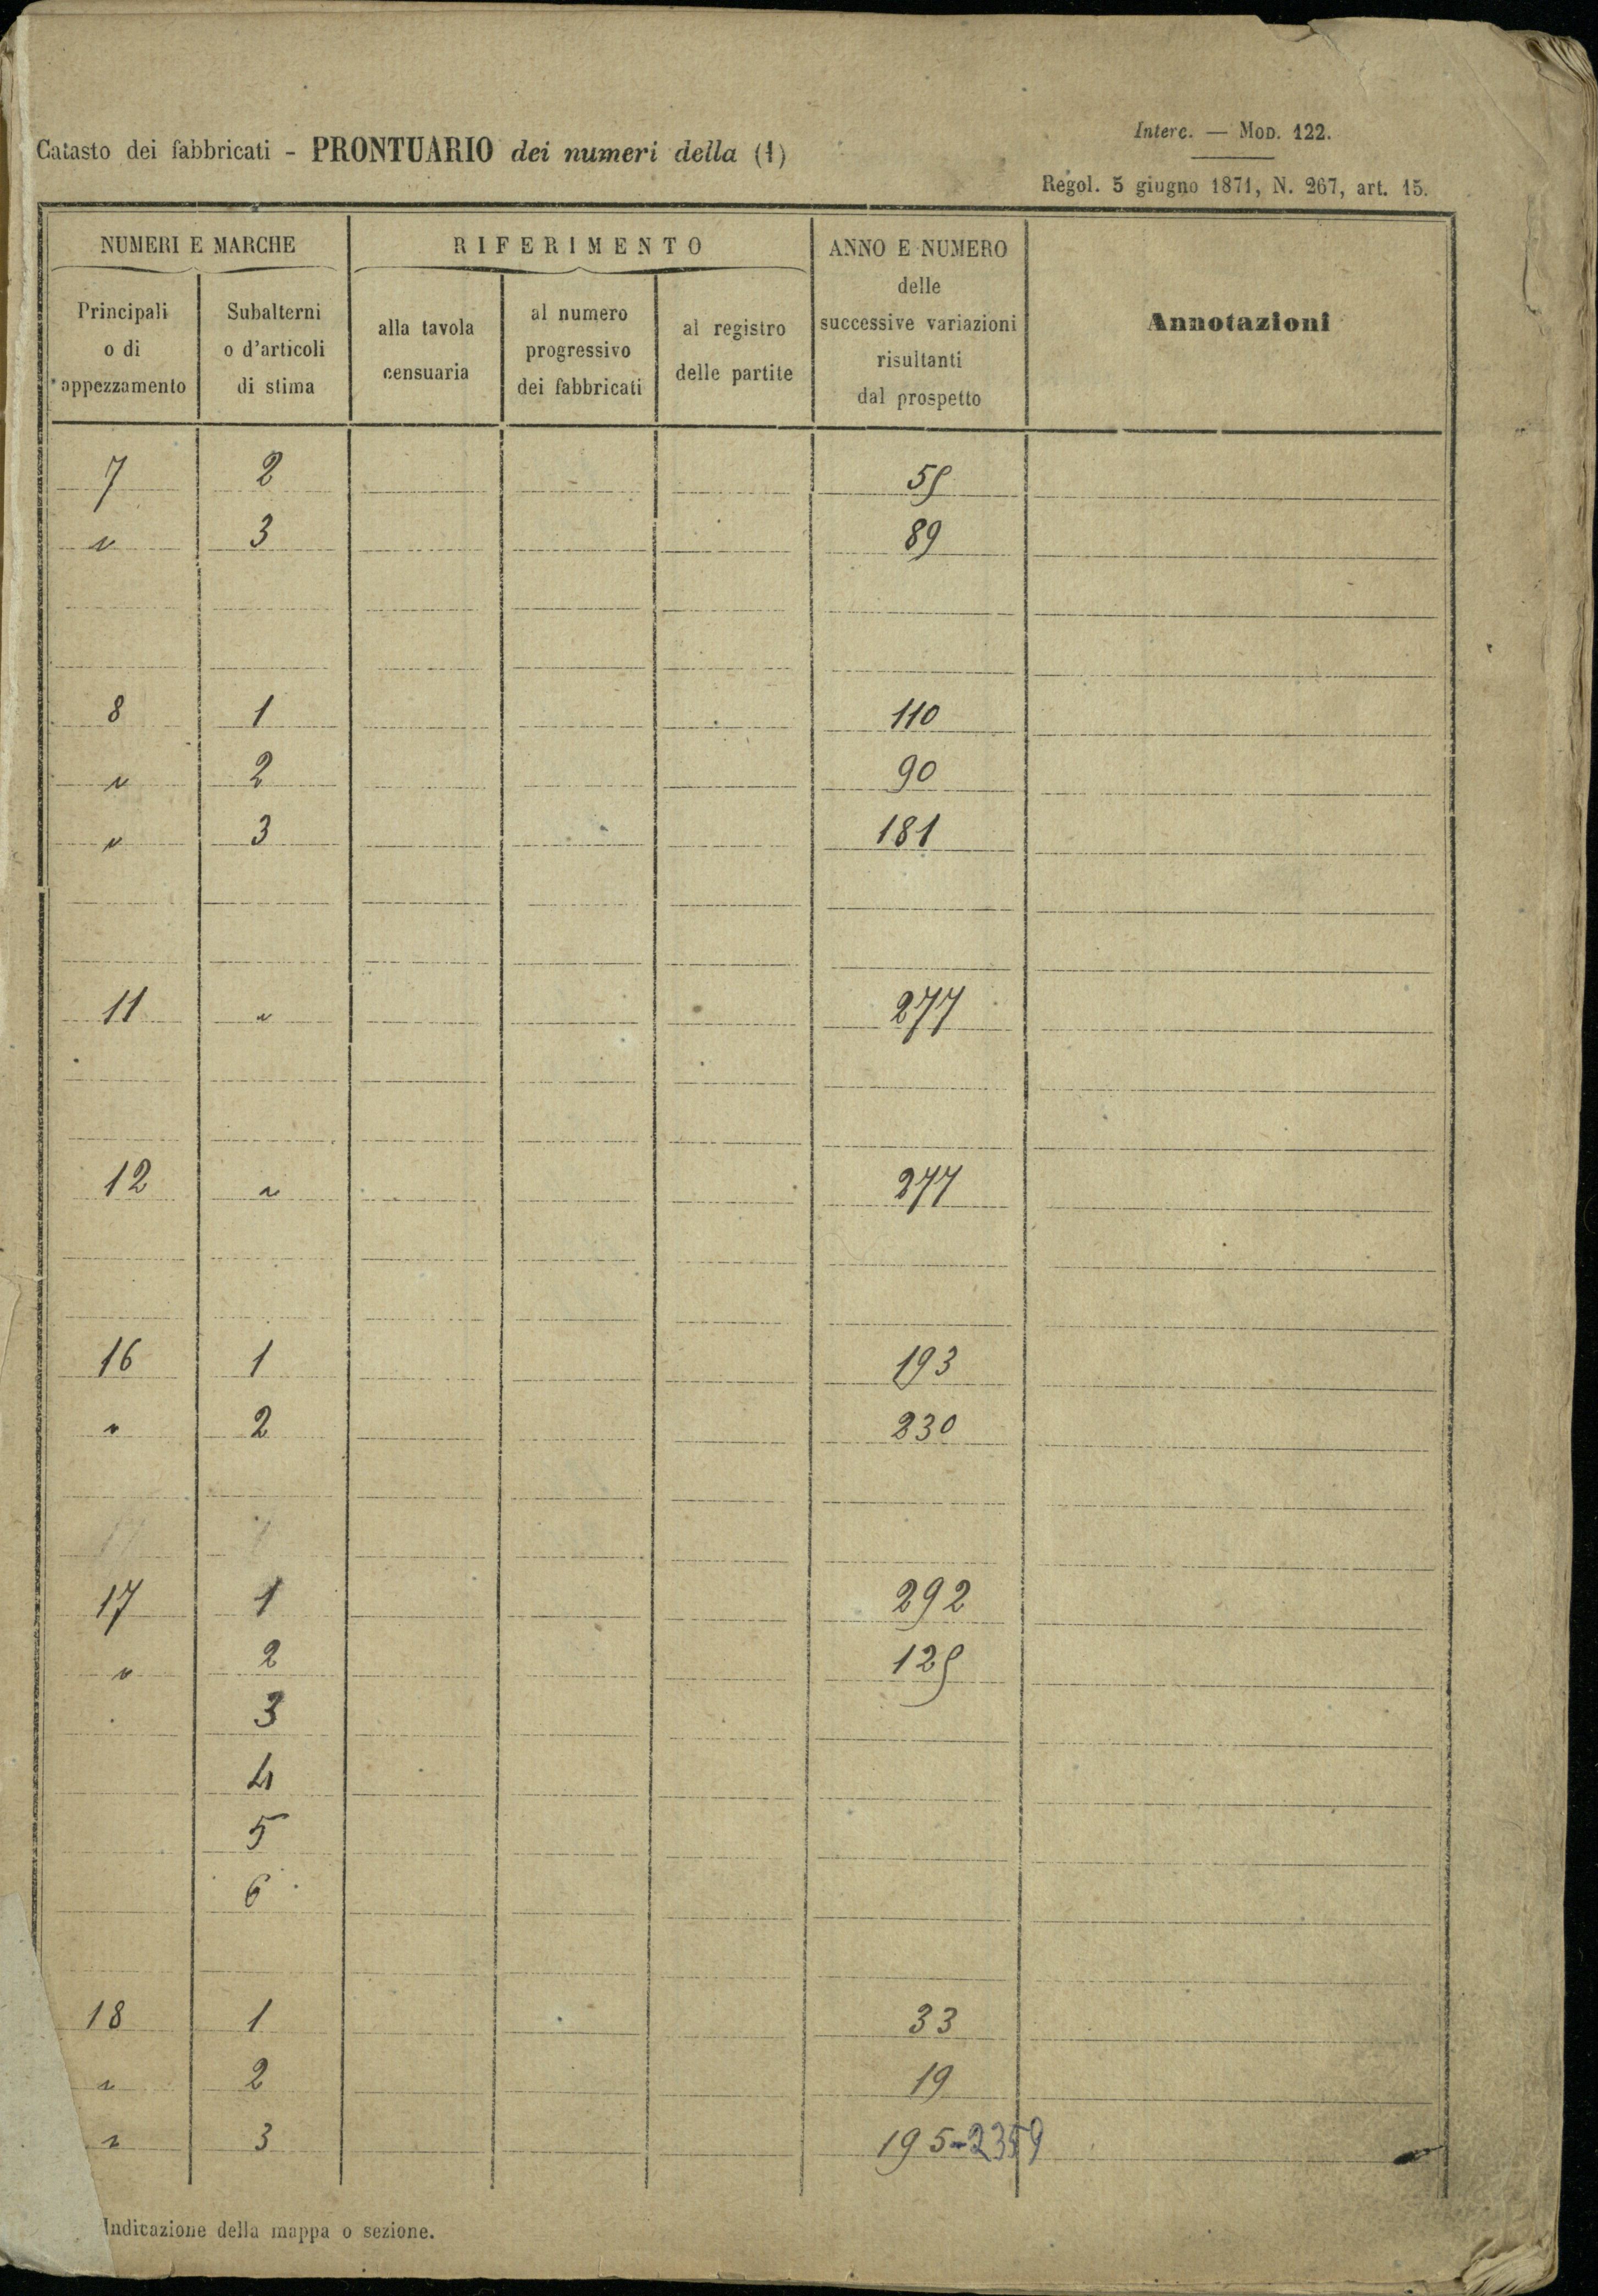 Interc. — Mod. 122.
Catasto dei fabbricati - PRONTUARIO dei numeri della (1)
Regol. 5 giugno 1871, N. 267, art. 15.
NUMERI E MARCHE
RIFERIMENTO
ANNO E NUMERO
delle
successive variazioni
risultanti
dal prospetto
Annotazioni
Principali
o di
appezzamento
Subalterni
o d'articoli
di stima
alla tavola
censuaria
al numero
progressivo
dei fabbricati
al registro
delle partite
7 2
" 3 89
8 1 110
" 2 90
" 3 181
11 " 277
12 " 277
16 1 193
" 2 230
17 1 292
" 2
3
4
5
6
18 1 33
" 2 19
" 3 195-2359
Indicazione della mappa o sezione.